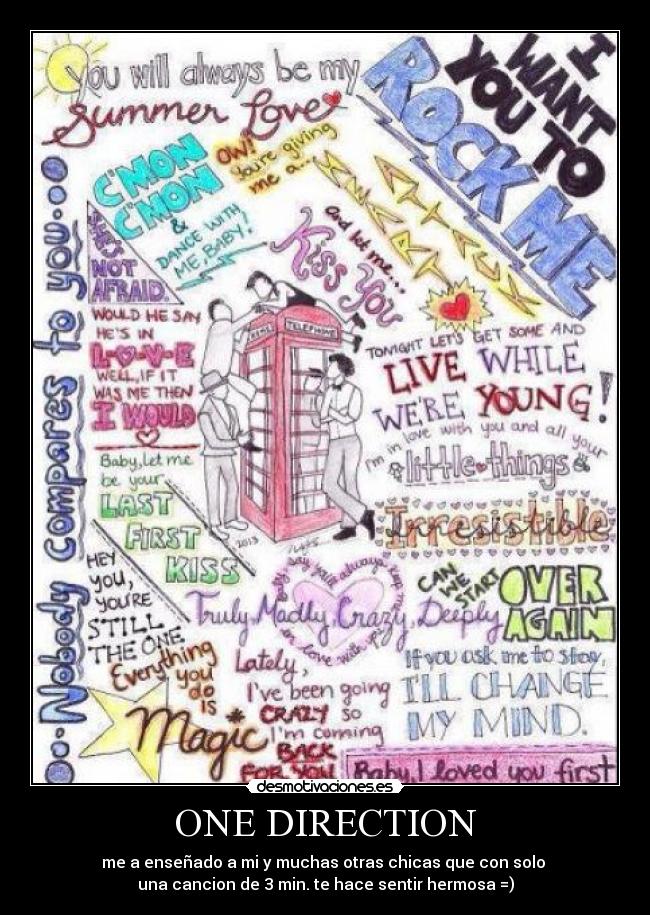 You will always be my
Summer Love
I
WANT
YOU TO
ROCK ME
C'MON
C'MON
&
DANCE WITH
ME, BABY!
OW!
You're giving
me a...
HEART
ATTACK
and let me...
Kiss You
SHE'S
NOT
AFRAID.
WOULD HE SAY
HE'S IN
L-O-V-E
WELL, IF IT
WAS ME THEN
I WOULD
TELEPHONE
TONIGHT LET'S GET SOME AND
LIVE WHILE
WE'RE YOUNG!
I'm in love with you and all your
little things
Irresistible
Baby, let me
be your
LAST
FIRST
KISS
2013
HEY
you,
YOU'RE
STILL
THE ONE
Truly, Madly, Crazy, Deeply
in love with you
CAN
WE
START
OVER
AGAIN
Everything
you
do
is
Magic
Lately,
I've been going
CRAZY so
I'm coming
BACK
FOR YOU
If you ask me to stay,
I'LL CHANGE
MY MIND.
Baby, I loved you first
Nobody compares to you...
desmotivaciones.es
ONE DIRECTION
me a enseñado a mi y muchas otras chicas que con solo
una cancion de 3 min. te hace sentir hermosa =)